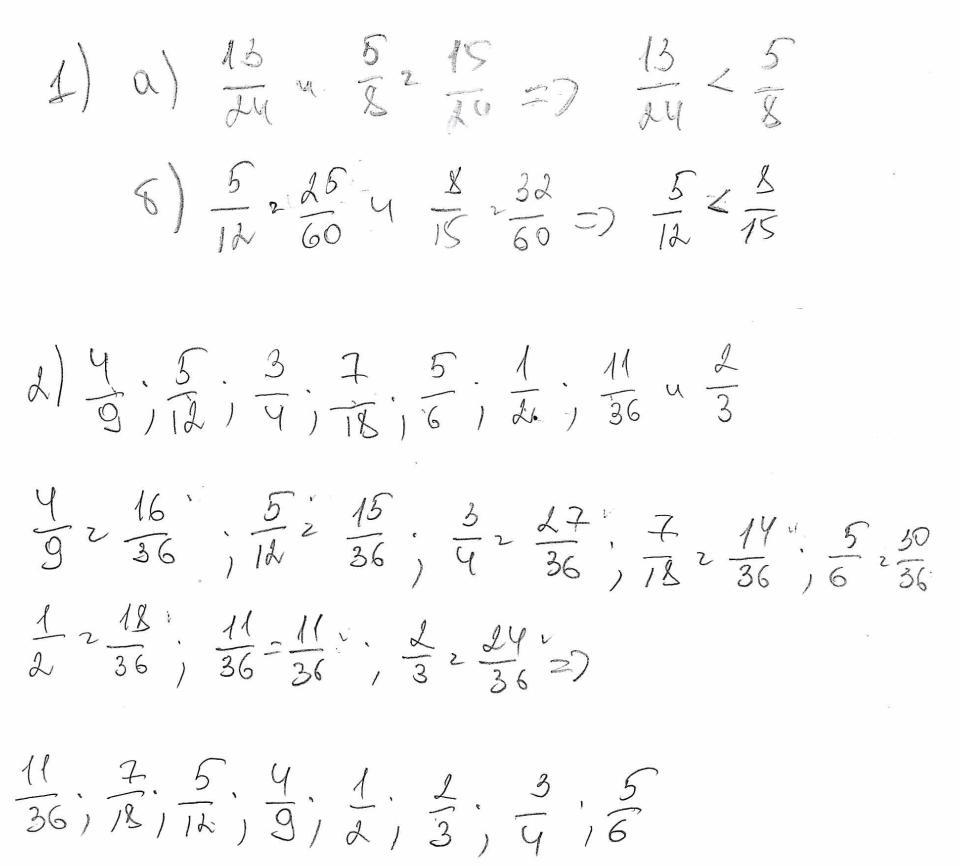 1) а) 13/24 и 5/8 = 15/24 => 13/24 < 5/8
б) 5/12 = 25/60 и 8/15 = 32/60 => 5/12 < 8/15
2) 4/9 ; 5/12 ; 3/4 ; 7/18 ; 5/6 ; 1/2 ; 11/36 и 2/3
4/9 = 16/36 ; 5/12 = 15/36 ; 3/4 = 27/36 ; 7/18 = 14/36 ; 5/6 = 30/36
1/2 = 18/36 ; 11/36 = 11/36 ; 2/3 = 24/36 =>
11/36 ; 7/18 ; 5/12 ; 4/9 ; 1/2 ; 2/3 ; 3/4 ; 5/6